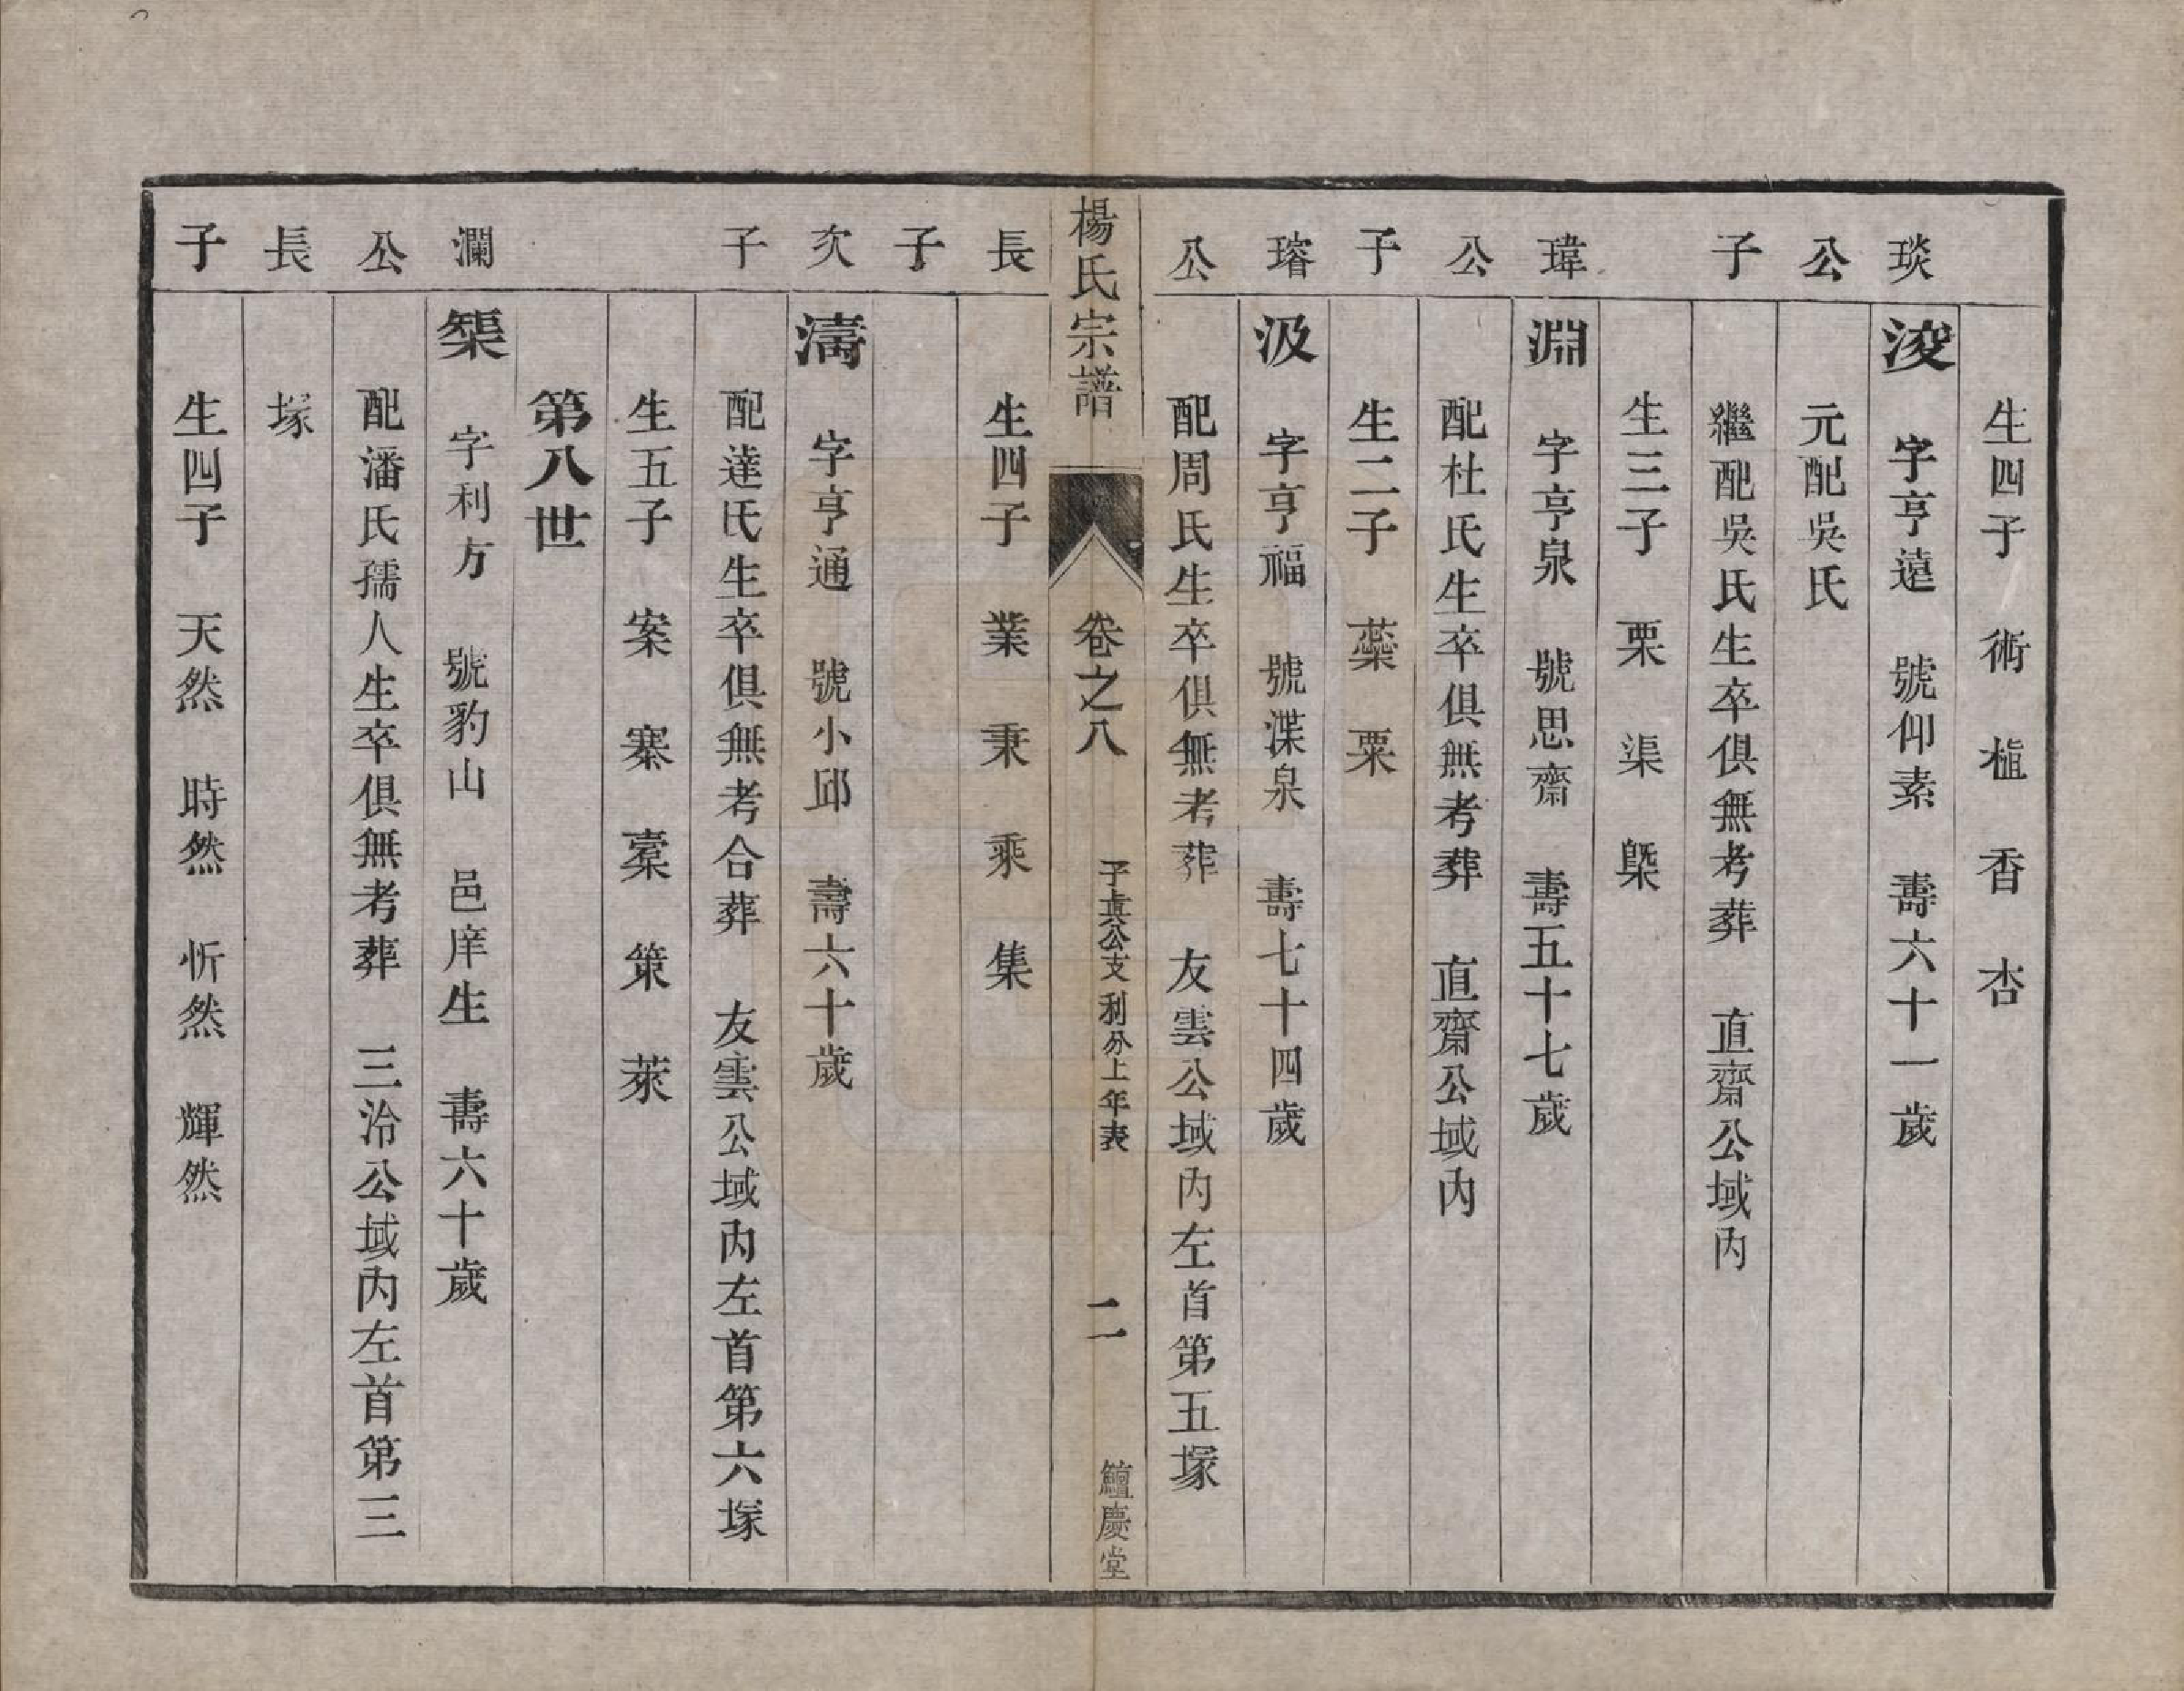 生四子 術 植 香 杏
琰公子
浚 字亨遠 號仰素 壽六十一歲
元配吳氏
繼配吳氏生卒俱無考葬 直齋公域內
生三子 栗 渠 槩
瑋公子
淵 字亨泉 號思齋 壽五十七歲
配杜氏生卒俱無考葬 直齋公域內
生二子 蘃 粟
璿公長子
汲 字亨福 號渫泉 壽七十四歲
配周氏生卒俱無考葬 友雲公域內左首第五塚
楊氏宗譜 卷之八 子真公支利分上年表 二 鱣慶堂
生四子 業 秉 乘 集
次子
濤 字亨通 號小邱 壽六十歲
配達氏生卒俱無考合葬 友雲公域內左首第六塚
生五子 案 寨 稾 策 萊
第八世
瀾公長子
榘 字利方 號豹山 邑庠生 壽六十歲
配潘氏孺人生卒俱無考葬 三泠公域內左首第三
塚
生四子 天然 時然 忻然 輝然